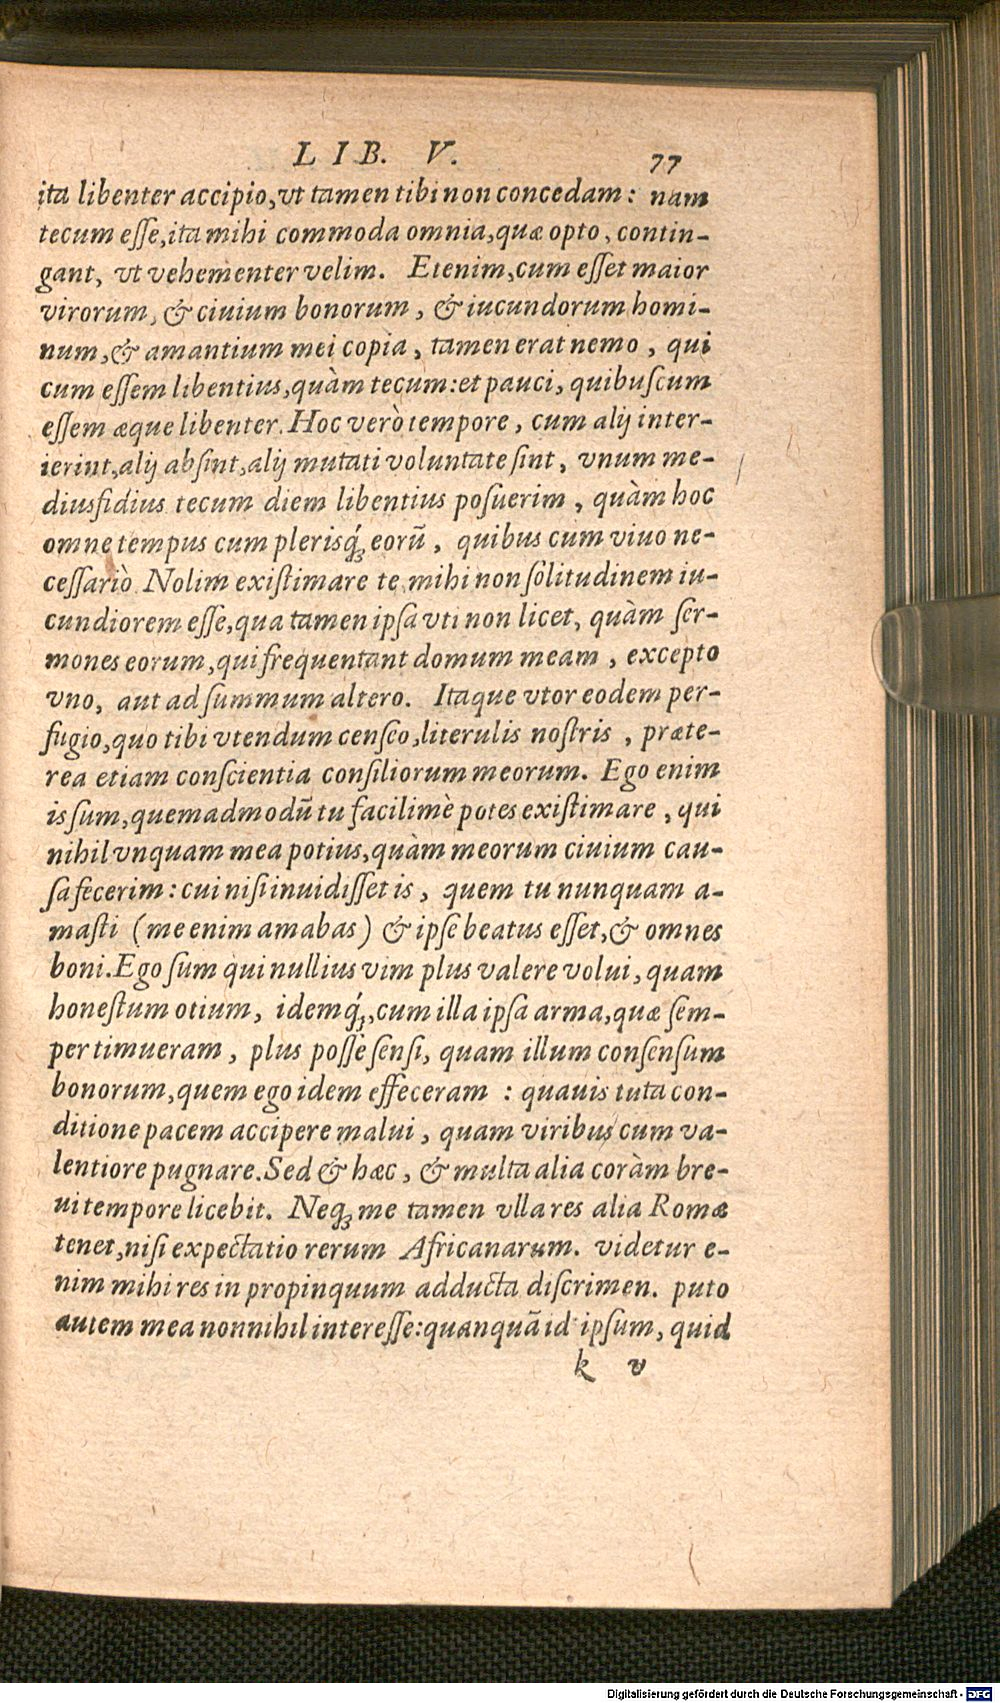 LIB. V. 77
ita libenter accipio,vt tamen tibi non concedam: nam
tecum eſſe,ita mihi commoda omnia,quæ opto, contin-
gant, vt vehementer velim. Etenim,cum eſſet maior
virorum, & ciuium bonorum, & iucundorum homi-
num,& amantium mei copia, tamen erat nemo, qui
cum eſſem libentius,quàm tecum:et pauci, quibuſcum
eſſem æque libenter. Hoc verò tempore, cum alij inter-
ierint,alij abſint,alij mutati voluntate ſint, vnum me-
diusfidius tecum diem libentius poſuerim, quàm hoc
omne tempus cum pleriſq́ꝫ eorũ, quibus cum viuo ne-
ceſſariò Nolim exiſtimare te mihi non ſolitudinem iu-
cundiorem eſſe,qua tamen ipſa vti non licet, quàm ſer-
mones eorum,qui frequentant domum meam, excepto
vno, aut ad ſummum altero. Itaque vtor eodem per-
fugio,quo tibi vtendum cenſeo,literulis noſtris, præte-
rea etiam conſcientia conſiliorum meorum. Ego enim
is ſum,quemadmodũ tu facilimè potes exiſtimare, qui
nihil vnquam mea potius,quàm meorum ciuium cau-
ſa fecerim: cui niſi inuidiſſet is, quem tu nunquam a-
maſti (me enim amabas) & ipſe beatus eſſet,& omnes
boni.Ego ſum qui nullius vim plus valere volui,quam
honeſtum otium, idemq́ꝫ,cum illa ipſa arma,quæ ſem-
per timueram, plus poſſe ſenſi, quam illum conſenſum
bonorum,quem ego idem effeceram : quauis tuta con-
ditione pacem accipere malui, quam viribus cum va-
lentiore pugnare.Sed & hæc, & multa alia coràm bre-
ui tempore licebit. Neqꝫ me tamen vlla res alia Romæ
tenet,niſi expectatio rerum Africanarum. videtur e-
nim mihi res in propinquum adducta diſcrimen. puto
autem mea nonnihil intereſſe:quanquã id ipſum, quid
k v
Digitalisierung gefördert durch die Deutsche Forschungsgemeinschaft - DFG